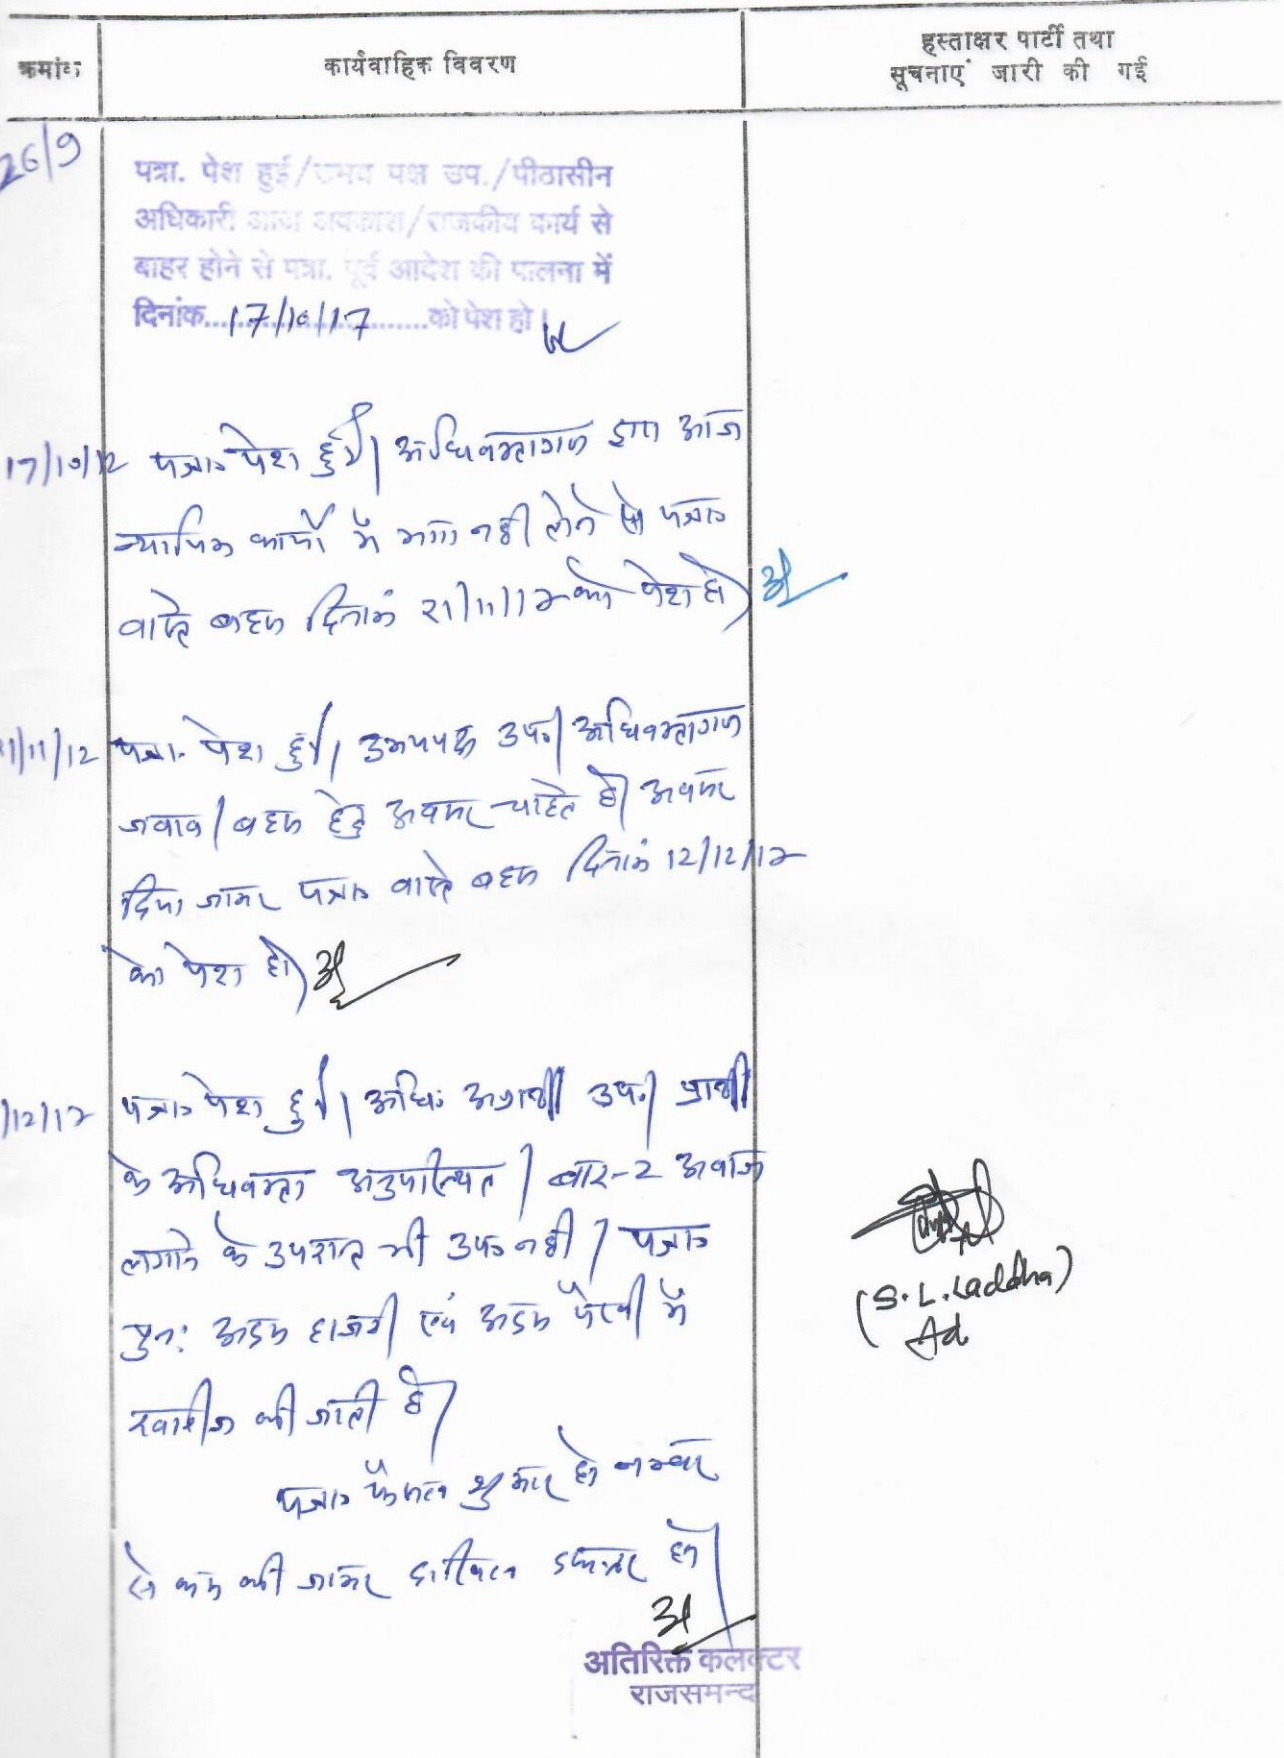 क्रमांक
कार्यवाहिक विवरण
हस्ताक्षर पार्टी तथा
सूचनाएं जारी की गई
26/9
पत्रा. पेश हुई/उभय पक्ष उप./पीठासीन
अधिकारी आज अवकाश/राजकीय कार्य से
बाहर होने से पत्रा. पूर्व आदेश की पालना में
दिनांक....17/10/17....को पेश हो।
17/10/17 पत्रा० पेश हुई। अधिवक्तागण द्वारा आज
न्यायिक कार्यो में भाग नही लेने से पत्रा०
वास्ते बहस दिनांक 21/11/17 को पेश हो।
21/11/17 पत्रा० पेश हुई। उभयपक्ष उप०। अधिवक्तागण
जवाब/बहस हेतु अवसर चाहते है। अवसर
दिया जाकर पत्रा० वास्ते बहस दिनांक 12/12/17
को पेश हो।
/12/17 पत्रा० पेश हुई। अधि० अप्रार्थी उप०। प्रार्थी
के अधिवक्ता अनुपस्थित। बार-2 अवाज
लगाने के उपरान्त भी उप० नही। पत्रा०
पुन: अदम हाजरी एवं अदम पैरवी में
खारीज की जाती है।
पत्रा० फैसल शुमार हो नम्बर
से कम की जाकर दाखिल दफ्तर हो।
(S.L. Laddha)
Ad
अतिरिक्त कलक्टर
राजसमन्द